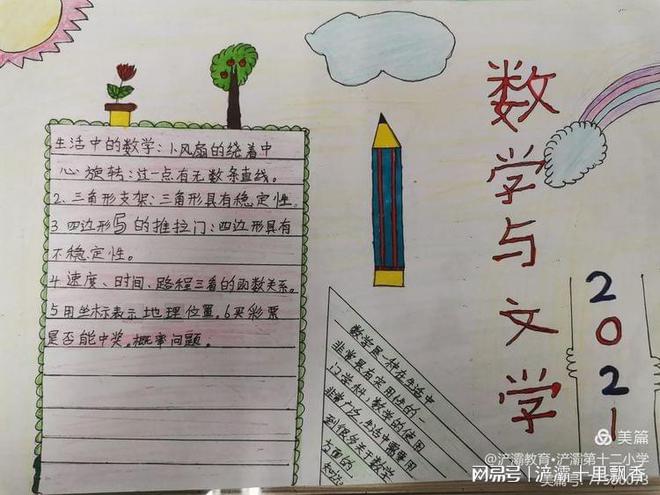 生活中的数学：1、风扇的绕着中
心旋转：过一点有无数条直线。
2、三角形支架：三角形具有稳定性。
3 四边形的推拉门：四边形具有
不稳定性。
4 速度、时间、路程三角的函数关系。
5 用坐标表示地理位置。6 买彩票
是否能中奖。概率问题。
数学是一种在生活中
非常具有实用性的一
门学科，数学的使用
非常广泛，生活中需要用
到很多关于数学
方面的
知识。
数学与文学
2021
美篇
@浐灞教育·浐灞第十二小学
网易号 | 浐灞十里飘香